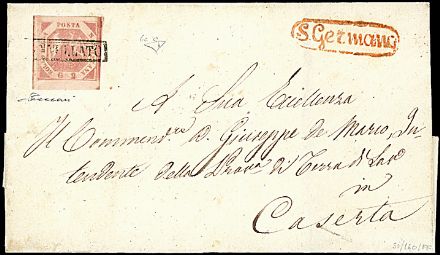 POSTA
ANNULLATO
G 2
S. Germano
A Sua Eccellenza
Il Commend.re D. Giuseppe de Marco, In
tendente della Prov.a di Terra di Lav.o
in
Caserta